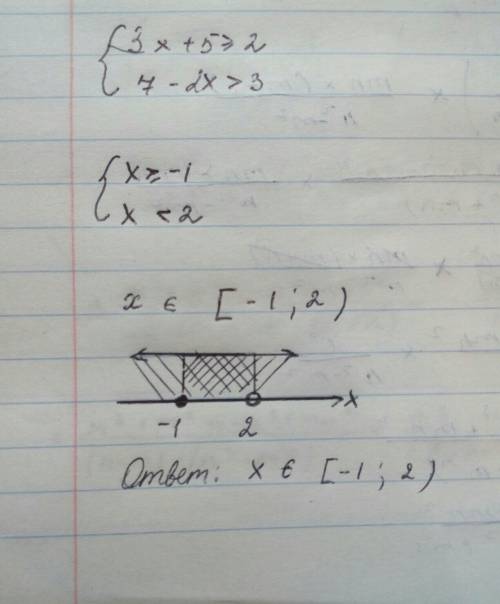 { 3x + 5 ≥ 2
7 - 2x > 3
{ x ≥ -1
x < 2
x ∈ [-1; 2)
x
-1 2
Ответ: x ∈ [-1; 2)